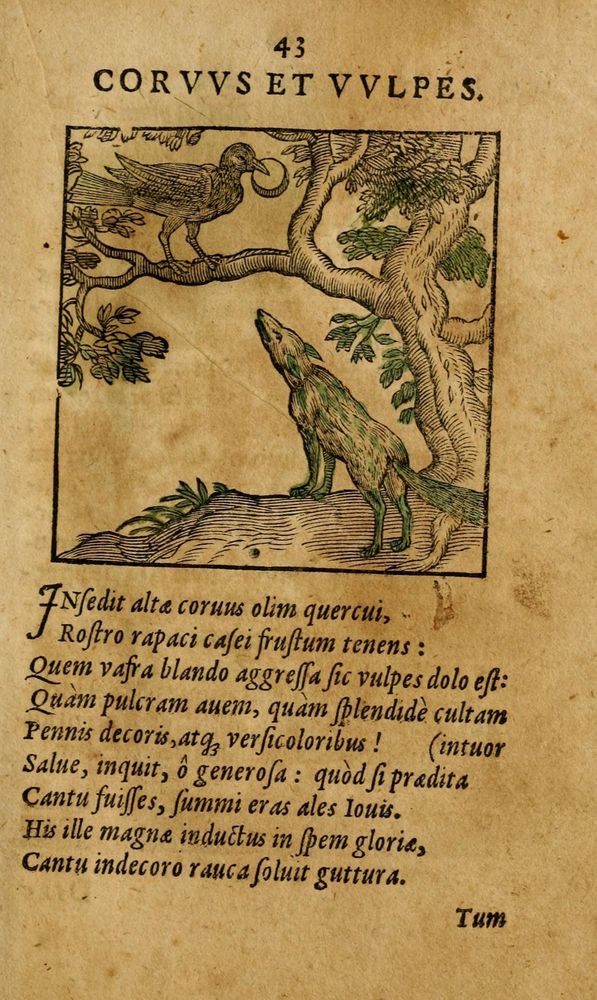 43
CORVVS ET VVLPES.
INſedit altæ coruus olim quercui,
Roſtro rapaci caſei fruſtum tenens :
Quem vafra blando aggreſſa ſic vulpes dolo eſt:
Quàm pulcram auem, quàm ſplendidè cultam
Pennis decoris, atq; verſicoloribus ! (intuor
Salue, inquit, ô generoſa : quòd ſi prædita
Cantu fuiſſes, ſummi eras ales Iouis.
His ille magnæ inductus in ſpem gloriæ,
Cantu indecoro rauca ſoluit guttura.
Tum